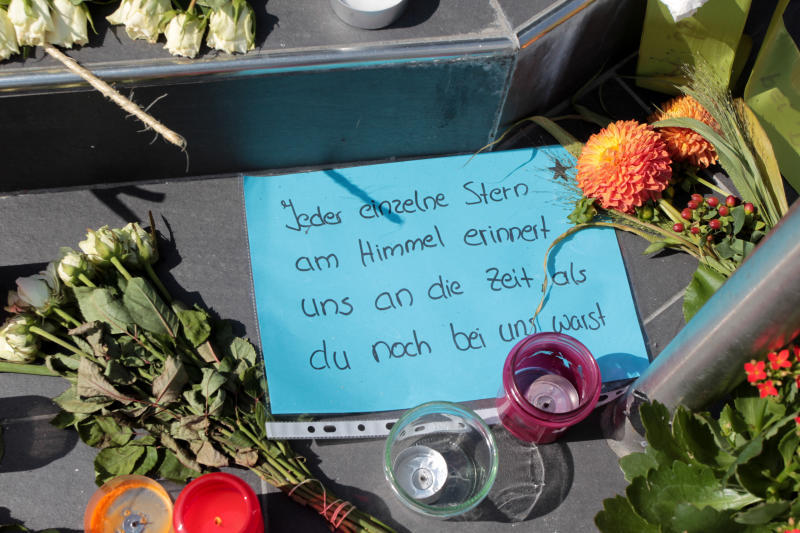 Jeder einzelne Stern
am Himmel erinnert
uns an die Zeit als
du noch bei uns warst